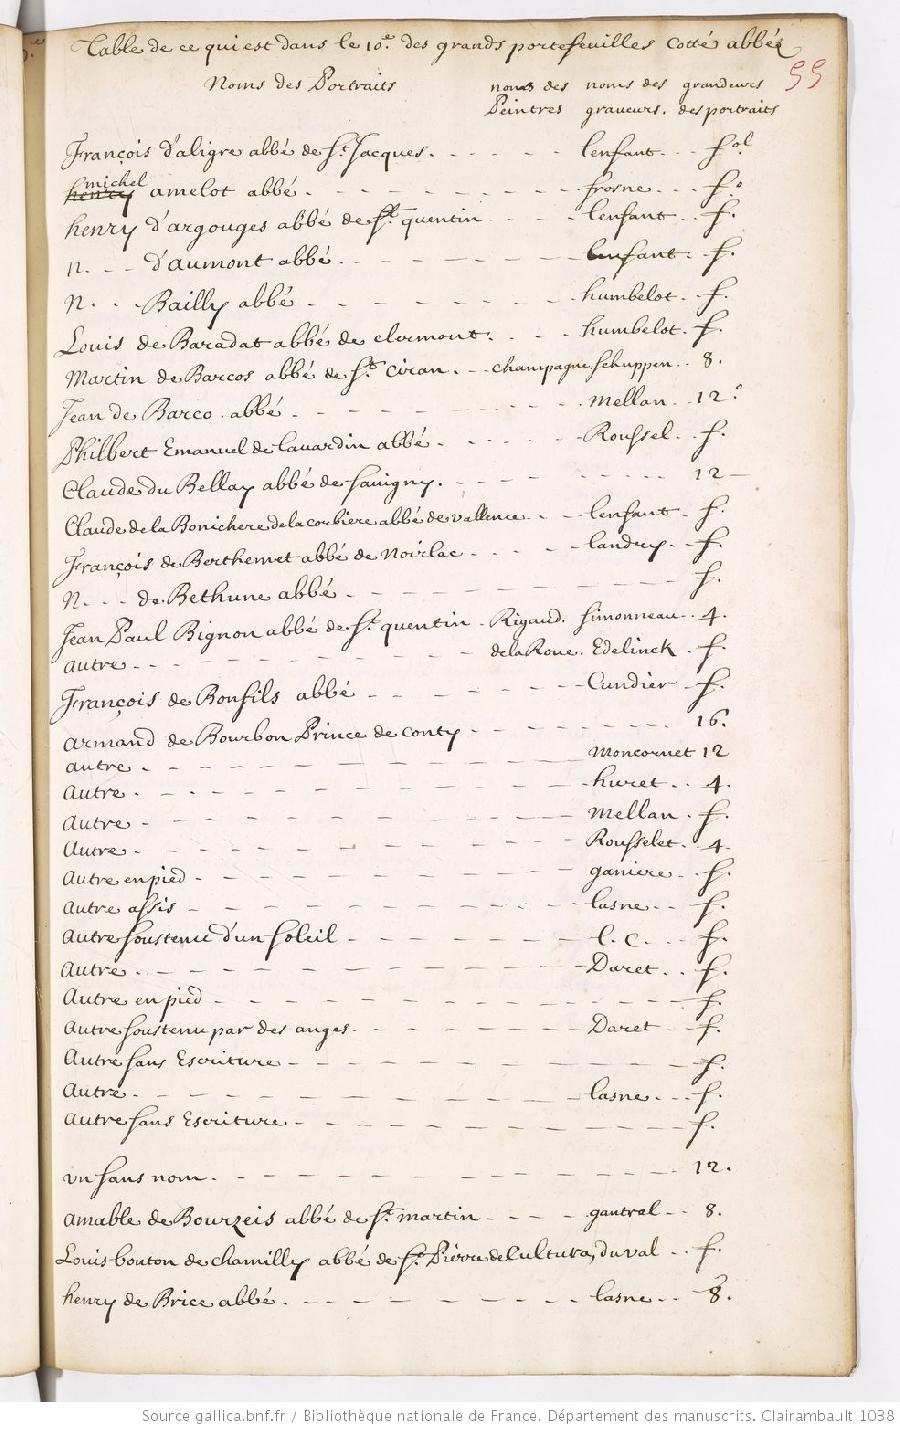 Table de ce qui est dans le 10.e des grands portefeuilles cotté abbés
55
Noms des Portraits noms des Peintres noms des graveurs. grandeurs des portraits
François d'aligre abbé de St. Jacques. lenfant fol
henry michel amelot abbé. frosne f.o
henry d'argouges abbé de St. quentin lenfant f.
n. d'aumont abbé. lenfant. f.
n. Bailly abbé humbelot. f.
Louis de Baradat abbé de clermont. humbelot. f.
Martin de Barcos abbé de St. Ciran. champagne schuppen 8.
Jean de Barco abbé mellan. 12.
Philbert Emanuel de lavardin abbé. Roussel. f.
Claude du Bellay abbé de savigny. 12
Claude de la Bonichere de la coubiere abbé de vallence lenfant f.
François de Berthemet abbé de Noirlac landry. f.
n. de Bethune abbé f.
Jean Paul Bignon abbé de St. quentin Rigaud. simonneau 4.
autre de la Roue. Edelinck f.
François de Bonfils abbé Cundier f.
armand de Bourbon Prince de conty 16.
autre. moncornet 12
autre. huret. 4.
autre mellan. f.
autre. Rousselet. 4.
autre en pied ganiere f.
autre assis lasne f.
autre soustenu d'un soleil l. c. f.
autre. Daret. f.
autre en pied f.
autre soustenu par des anges. Daret f.
autre sans Escriture f.
autre. lasne. f.
autre sans Escriture f.
un sans nom. 12.
amable de Bourzeis abbé de St. martin gantrel 8.
Louis bouton de chamilly abbé de St. Pierre de Cultura, du val f.
henry de Brice abbé. lasne 8.
Source gallica.bnf.fr / Bibliothèque nationale de France. Département des manuscrits. Clairambault 1038